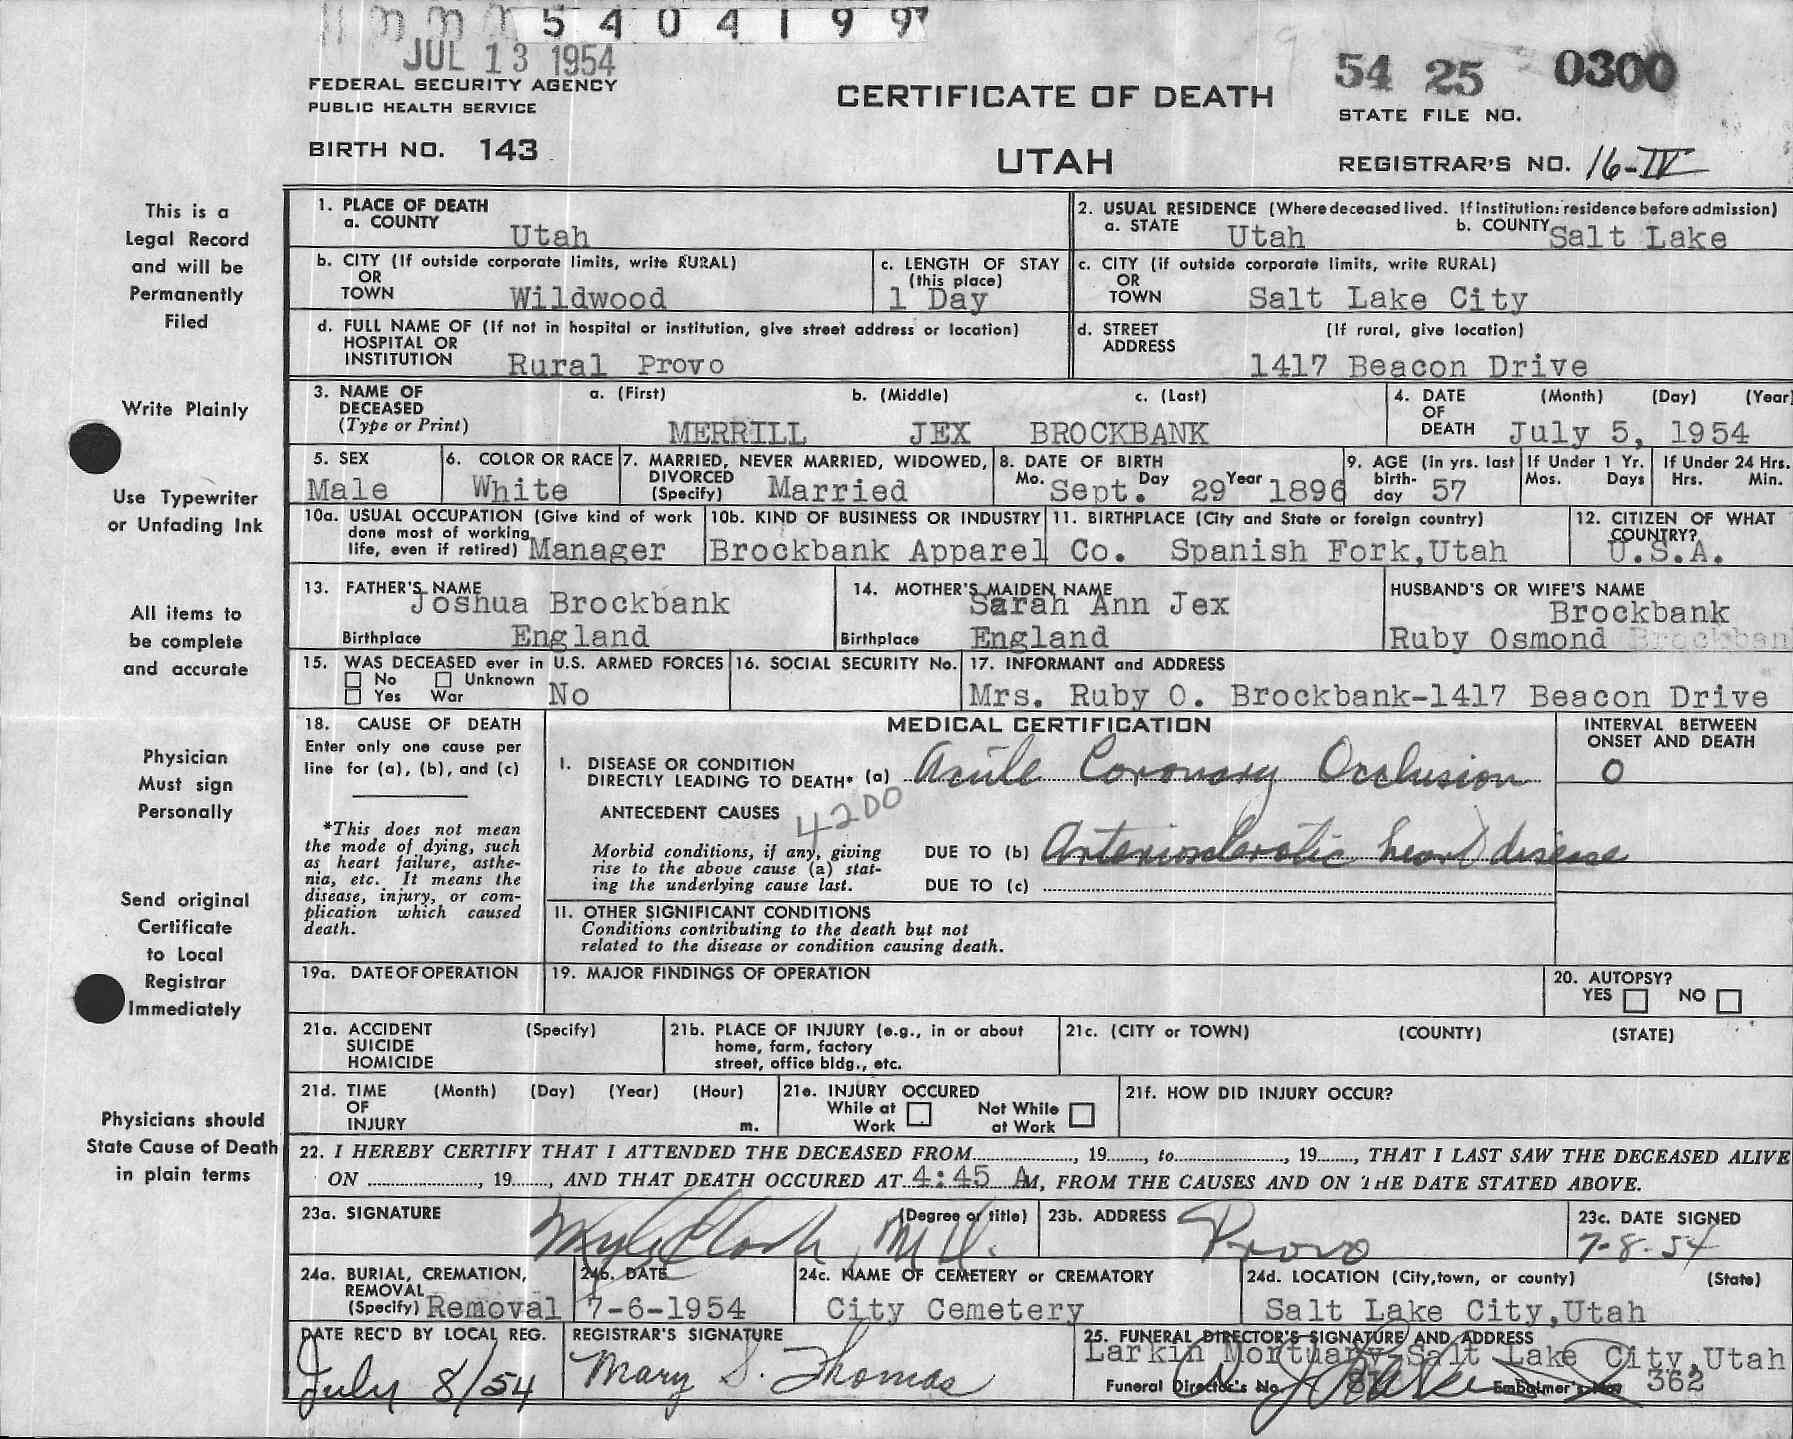 5404199
JUL 13 1954
FEDERAL SECURITY AGENCY
PUBLIC HEALTH SERVICE
BIRTH NO. 143
CERTIFICATE OF DEATH
UTAH
54 25 0300
STATE FILE NO.
REGISTRAR'S NO. 16-IV
This is a
Legal Record
and will be
Permanently
Filed
Write Plainly
Use Typewriter
or Unfading Ink
All items to
be complete
and accurate
Physician
Must sign
Personally
Send original
Certificate
to Local
Registrar
Immediately
Physicians should
State Cause of Death
in plain terms
1. PLACE OF DEATH
a. COUNTY Utah
2. USUAL RESIDENCE (Where deceased lived. If institution: residence before admission)
a. STATE Utah b. COUNTY Salt Lake
b. CITY (If outside corporate limits, write RURAL)
OR
TOWN Wildwood
c. LENGTH OF STAY
(this place)
1 Day
c. CITY (if outside corporate limits, write RURAL)
OR
TOWN Salt Lake City
d. FULL NAME OF (If not in hospital or institution, give street address or location)
HOSPITAL OR
INSTITUTION Rural Provo
d. STREET (If rural, give location)
ADDRESS
1417 Beacon Drive
3. NAME OF a. (First) b. (Middle) c. (Last)
DECEASED
(Type or Print) MERRILL JEX BROCKBANK
4. DATE (Month) (Day) (Year)
OF
DEATH July 5, 1954
5. SEX
Male
6. COLOR OR RACE
White
7. MARRIED, NEVER MARRIED, WIDOWED,
DIVORCED
(Specify) Married
8. DATE OF BIRTH
Mo. Sept. Day 29 Year 1896
9. AGE (In yrs. last
birth-
day 57
If Under 1 Yr.
Mos. Days
If Under 24 Hrs.
Hrs. Min.
10a. USUAL OCCUPATION (Give kind of work
done most of working
life, even if retired) Manager
10b. KIND OF BUSINESS OR INDUSTRY
Brockbank Apparel Co.
11. BIRTHPLACE (City and State or foreign country)
Spanish Fork,Utah
12. CITIZEN OF WHAT
COUNTRY?
U.S.A.
13. FATHER'S NAME
Joshua Brockbank
Birthplace England
14. MOTHER'S MAIDEN NAME
Sarah Ann Jex
Birthplace England
HUSBAND'S OR WIFE'S NAME
Brockbank
Ruby Osmond Brockban
15. WAS DECEASED ever in U.S. ARMED FORCES
No Unknown
Yes War No
16. SOCIAL SECURITY No.
17. INFORMANT and ADDRESS
Mrs. Ruby O. Brockbank-1417 Beacon Drive
18. CAUSE OF DEATH
Enter only one cause per
line for (a), (b), and (c)
*This does not mean
the mode of dying, such
as heart failure, asthe-
nia, etc. It means the
disease, injury, or com-
plication which caused
death.
MEDICAL CERTIFICATION
INTERVAL BETWEEN
ONSET AND DEATH
I. DISEASE OR CONDITION
DIRECTLY LEADING TO DEATH* (a) Acute Coronary Occlusion
0
ANTECEDENT CAUSES
4200
Morbid conditions, if any, giving
rise to the above cause (a) stat-
ing the underlying cause last.
DUE TO (b) Arteriosclerotic heart disease
DUE TO (c)
II. OTHER SIGNIFICANT CONDITIONS
Conditions contributing to the death but not
related to the disease or condition causing death.
19a. DATE OF OPERATION
19. MAJOR FINDINGS OF OPERATION
20. AUTOPSY?
YES NO
21a. ACCIDENT (Specify)
SUICIDE
HOMICIDE
21b. PLACE OF INJURY (e.g., in or about
home, farm, factory
street, office bldg., etc.
21c. (CITY or TOWN) (COUNTY) (STATE)
21d. TIME (Month) (Day) (Year) (Hour)
OF
INJURY m.
21e. INJURY OCCURED
While at Not While
Work at Work
21f. HOW DID INJURY OCCUR?
22. I HEREBY CERTIFY THAT I ATTENDED THE DECEASED FROM, 19, to, 19, THAT I LAST SAW THE DECEASED ALIVE
ON, 19, AND THAT DEATH OCCURED AT 4:45 AM, FROM THE CAUSES AND ON THE DATE STATED ABOVE.
23a. SIGNATURE (Degree or title)
Clark, M.D.
23b. ADDRESS Provo
23c. DATE SIGNED
7-8-54
24a. BURIAL, CREMATION,
REMOVAL
(Specify) Removal
24b. DATE
7-6-1954
24c. NAME OF CEMETERY or CREMATORY
City Cemetery
24d. LOCATION (City,town, or county) (State)
Salt Lake City,Utah
DATE REC'D BY LOCAL REG.
July 8/54
REGISTRAR'S SIGNATURE
Mary S. Thomas
25. FUNERAL DIRECTOR'S SIGNATURE AND ADDRESS
Larkin Mortuary,Salt Lake City,Utah
Funeral Director's No. Embalmer's No. 362